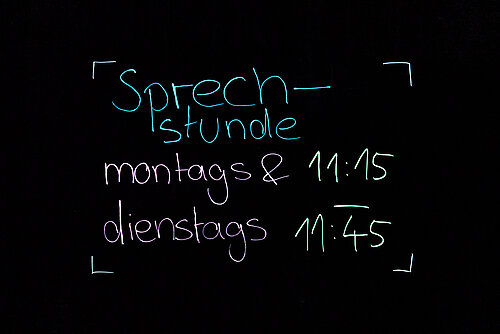 Sprech-
stunde
montags & 11:15
–
dienstags 11:45